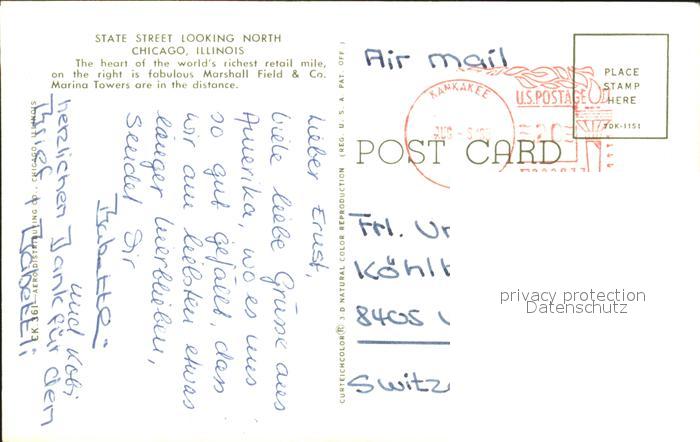 STATE STREET LOOKING NORTH
CHICAGO, ILLINOIS
The heart of the world's richest retail mile,
on the right is fabulous Marshall Field & Co.
Marina Towers are in the distance.
Lieber Ernst,
viele liebe Grüsse aus
Amerika, wo es uns
so gut gefällt, dass
wir am liebsten etwas
länger hierblieben,
sendet Dir
Babette
und Köbi
herzlichen Dank für den
Brief
EK 361—AERO DISTRIBUTING CO., CHICAGO, ILLINOIS
CURTEICHCOLOR® 3-D NATURAL COLOR REPRODUCTION (REG. U. S. A. PAT. OFF.)
Air mail
KANKAKEE
AUG
U.S. POSTAGE
PLACE
STAMP
HERE
7DK-1151
POST CARD
Frl. Ur
Köhl
8405
Switz
privacy protection
Datenschutz